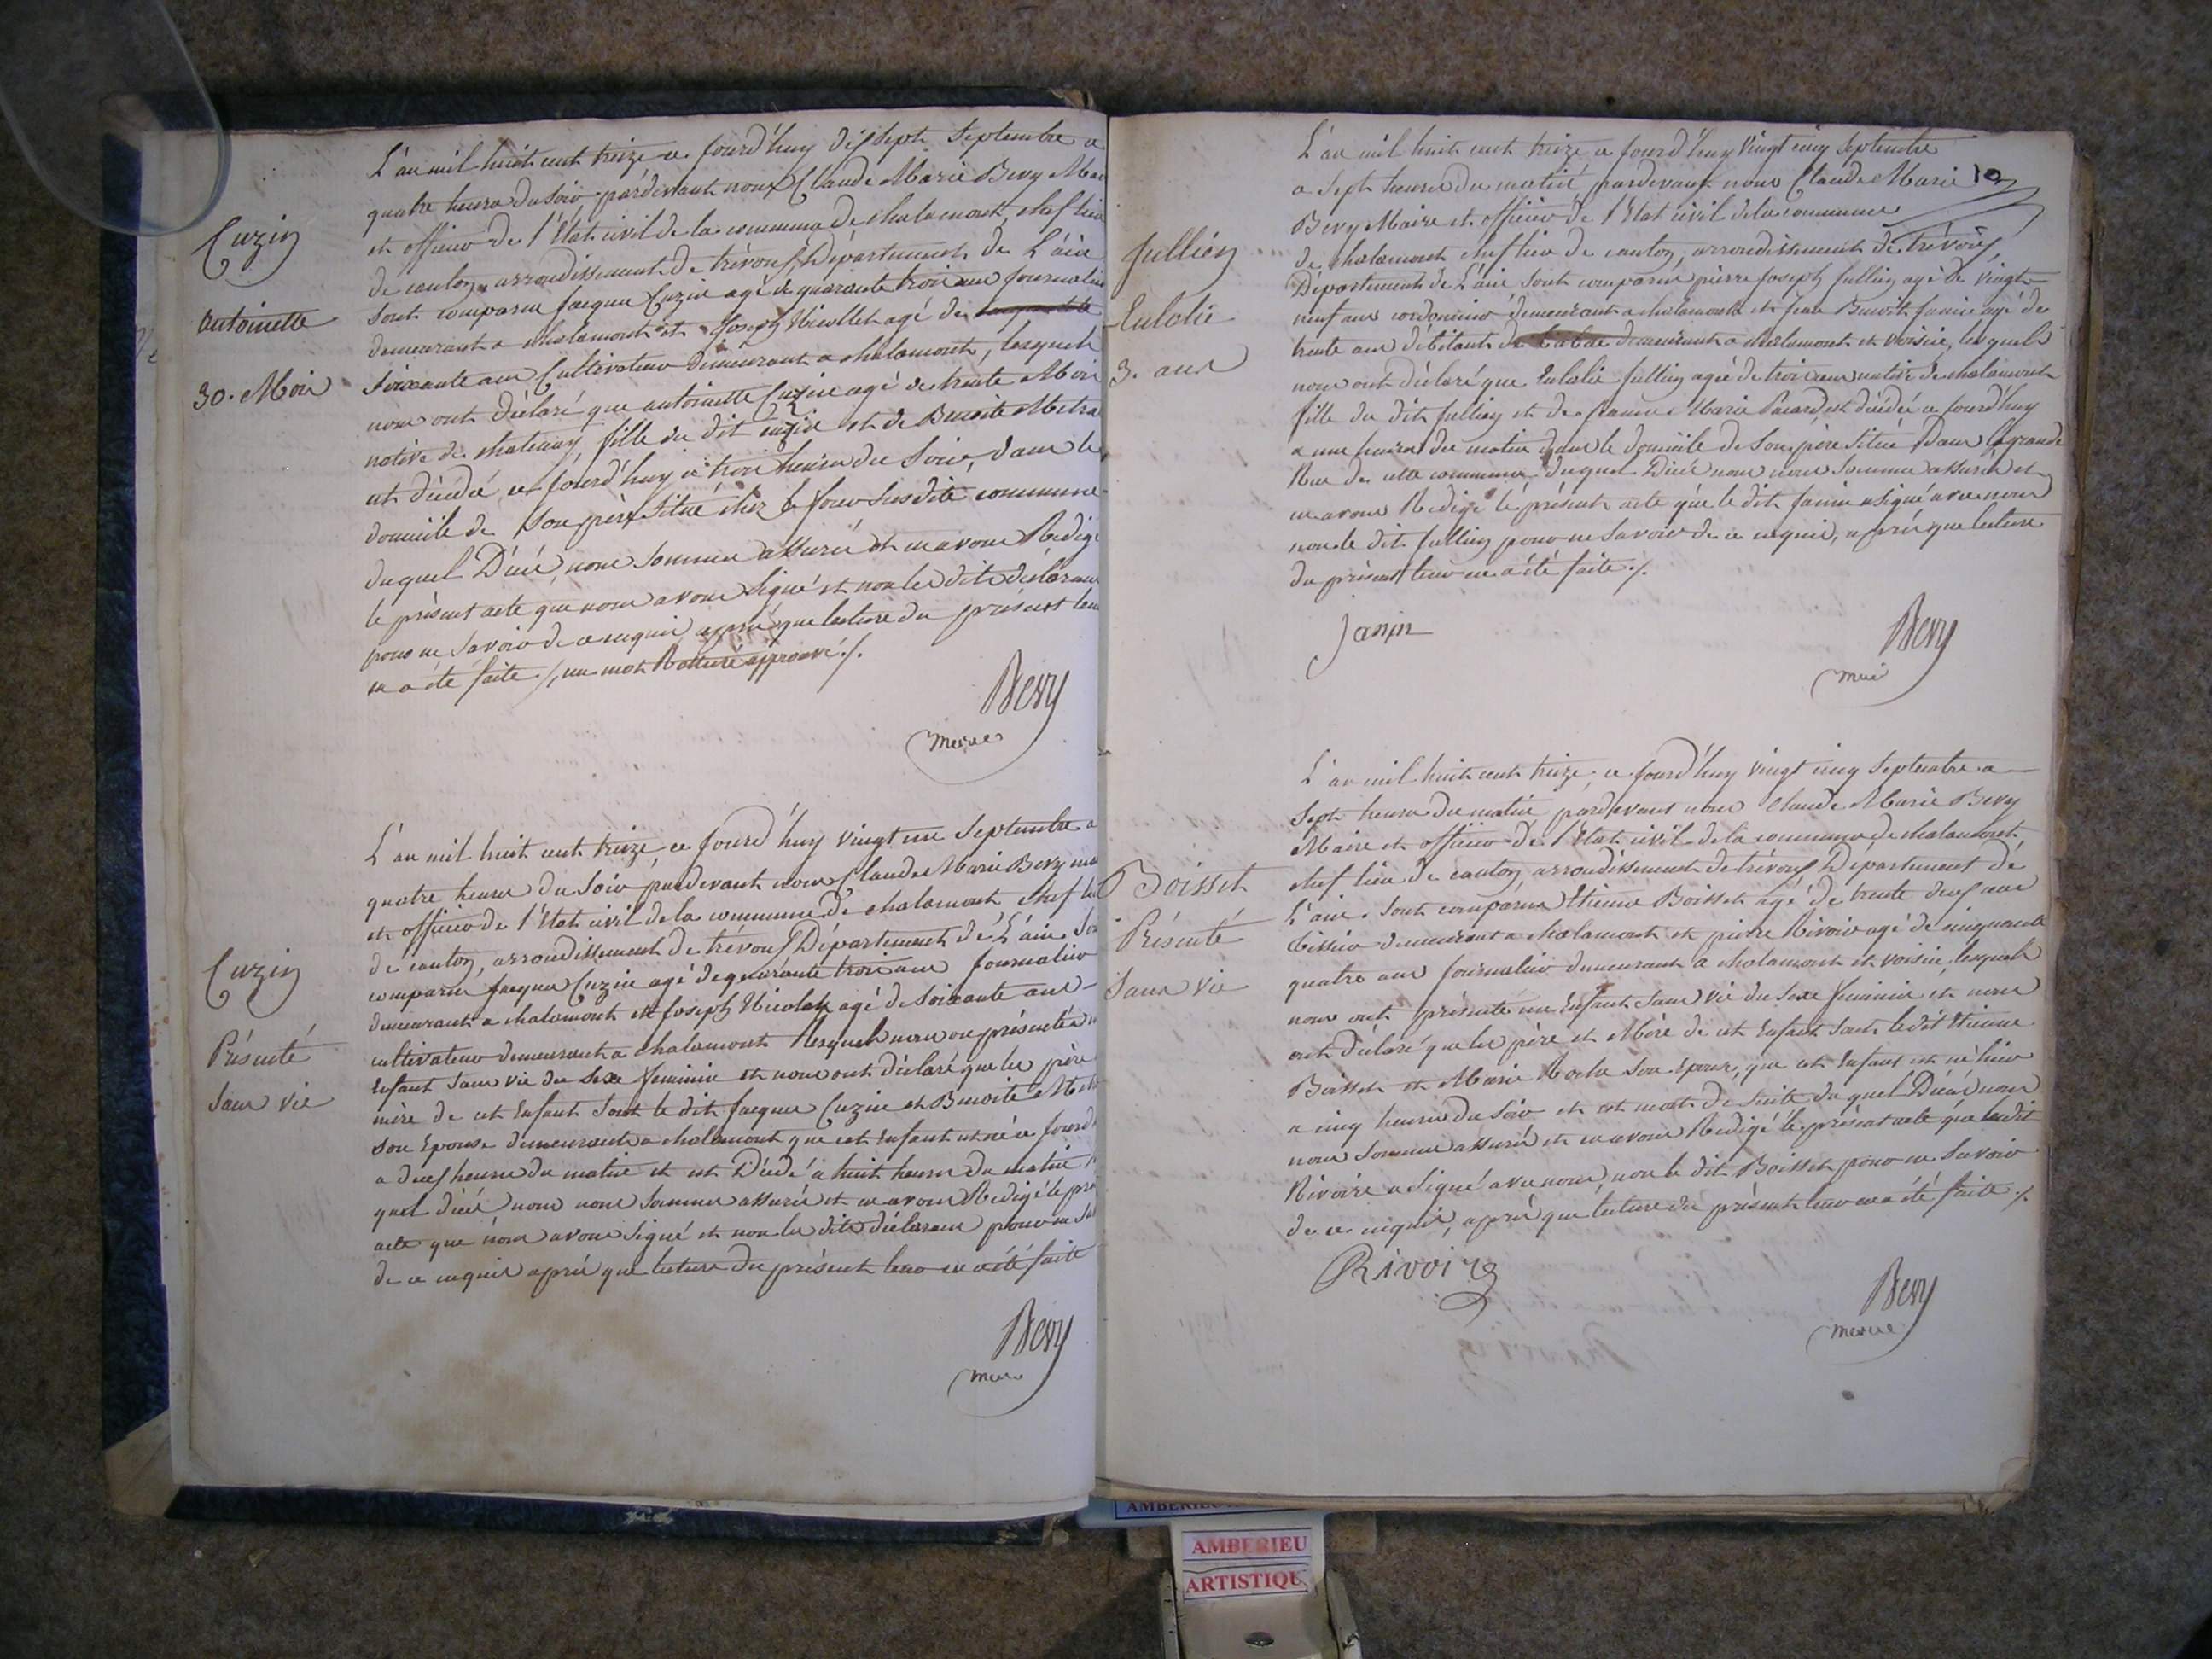 Cuzin
Antoinette
30. Mois
L'an mil huit cent treize ce jourd'huy dissept Septembre a
quatre heures du Soir, pardevant nous Claude Marie Bevy Mai
et officier de l'Etat civil de la commune de chalamont, chef lieu
de canton, arrondissement de trévoux, Département de L'ain
Sont comparus Jacques Cuzin agé de quarante trois ans journalier
demeurant a chalamont et Joseph Nicollet agé de
Soixante ans Cultivateur demeurant a chalamont, lesquels
nous ont déclaré que antoinette Cuzin agé de trente Mois
native de chatenay, fille du dit Cuzin et de Benoite Metra
est décédé ce jourd'huy a trois heures du Soir, dans le
domicile de Son père Situé chez le four Susdite commune
duquel Décé nous Sommes assurés et en avons Redigé
le présent acte que nous avons Signé et non les dits déclarans
pour ne Savoir de ce requis après que lecture du présent leur
en a été faite /, un mot Ratturé approuvé ./.
Bevy
maire
Cuzin
Présenté
Sans vie
L'an mil huit cent treize, ce jourd'huy vingt un Septembre a
quatre heures du Soir pardevant nous Claude Marie Bevy mai
et officier de l'Etat civil de la commune de chalamont chef lieu
de canton, arrondissement de trévoux Département de L'ain Sont
comparus Jacques Cuzin agé de quarante trois ans journalier
demeurant a chalamont et Joseph Nicolet agé de Soixante ans
cultivateur demeurant a chalamont lesquels nous on présentés un
Enfant Sans vie du Sexe feminin et nous ont déclaré que les père
mère de cet Enfant Sont le dit Jacques Cuzin et Benoite Met
Son Epouse demeurants a chalamont que cet Enfant est né ce jourd
a deux heures du matin et est Décédé a huit heures du matin
quel décé nous nous Sommes assurés et en avons Redigé le pré
acte que nous avons Signé et non les dits déclarans pour ne Sa
de ce requis après que lecture du présent leur en a été faite
Bevy
maire
10
Jullien
Eulalie
3. ans
L'an mil huit cent treize ce jourd'huy Vingt cinq Septembre
a Sept heures du matin pardevant nous Claude Marie
Bevy Maire et officier de l'Etat civil de la commune
de chalamont chef lieu de canton, arrondissement de trévoux
Département de L'ain Sont comparus pierre Joseph Jullien agé de vingt
neuf ans cordonnier demeurant a chalamont et Jean Benoit Janin agé de
trente ans débitant de tabac demeurant a chalamont et voisin, lesquels
nous ont déclaré que Eulalie Jullien agée de trois ans native de chalamont
fille du dit Jullien et de Marie est décédée ce jourd'huy
a une heure du matin dans le domicile de Son père Situé Dans la grande
Rue de cette commune. Duquel Décé nous nous Sommes assurés et
en avons Redigé le présent acte que le dit Janin a Signé avec nous
non le dit Jullien pour ne Savoir de ce requis, après que lecture
du présent leur en a été faite ./.
Janin
Bevy
maire
Boisset
Présenté
Sans vie
L'an mil huit cent treize, ce jourd'huy vingt cinq Septembre a
Sept heures du matin pardevant nous Claude Marie Bevy
Maire et officier de l'Etat civil de la commune de chalamont
chef lieu de canton, arrondissement de trévoux Département de
L'ain Sont comparus Etienne Boisset agé de trente deux ans
tissier demeurant a chalamont et pierre Rivoir agé de cinquante
quatre ans journalier demeurant a chalamont et voisin, lesquels
nous ont présenté un Enfant Sans vie du Sexe feminin et nous
ont déclaré que les père et Mère de cet Enfant Sont le dit Etienne
Boisset et Marie Roche Son Epouse, que cet Enfant est né hier
a cinq heures du Soir et est mort de Suite du quel Décé nous
nous Sommes assurés et en avons Redigé le présent acte que ledit
Rivoire a Signé avec nous, non le dit Boisset pour ne Savoir
de ce requis, après que lecture du présent leur en a été faite ./.
Rivoire
Bevy
maire
AMBERIEU
ARTISTIQU